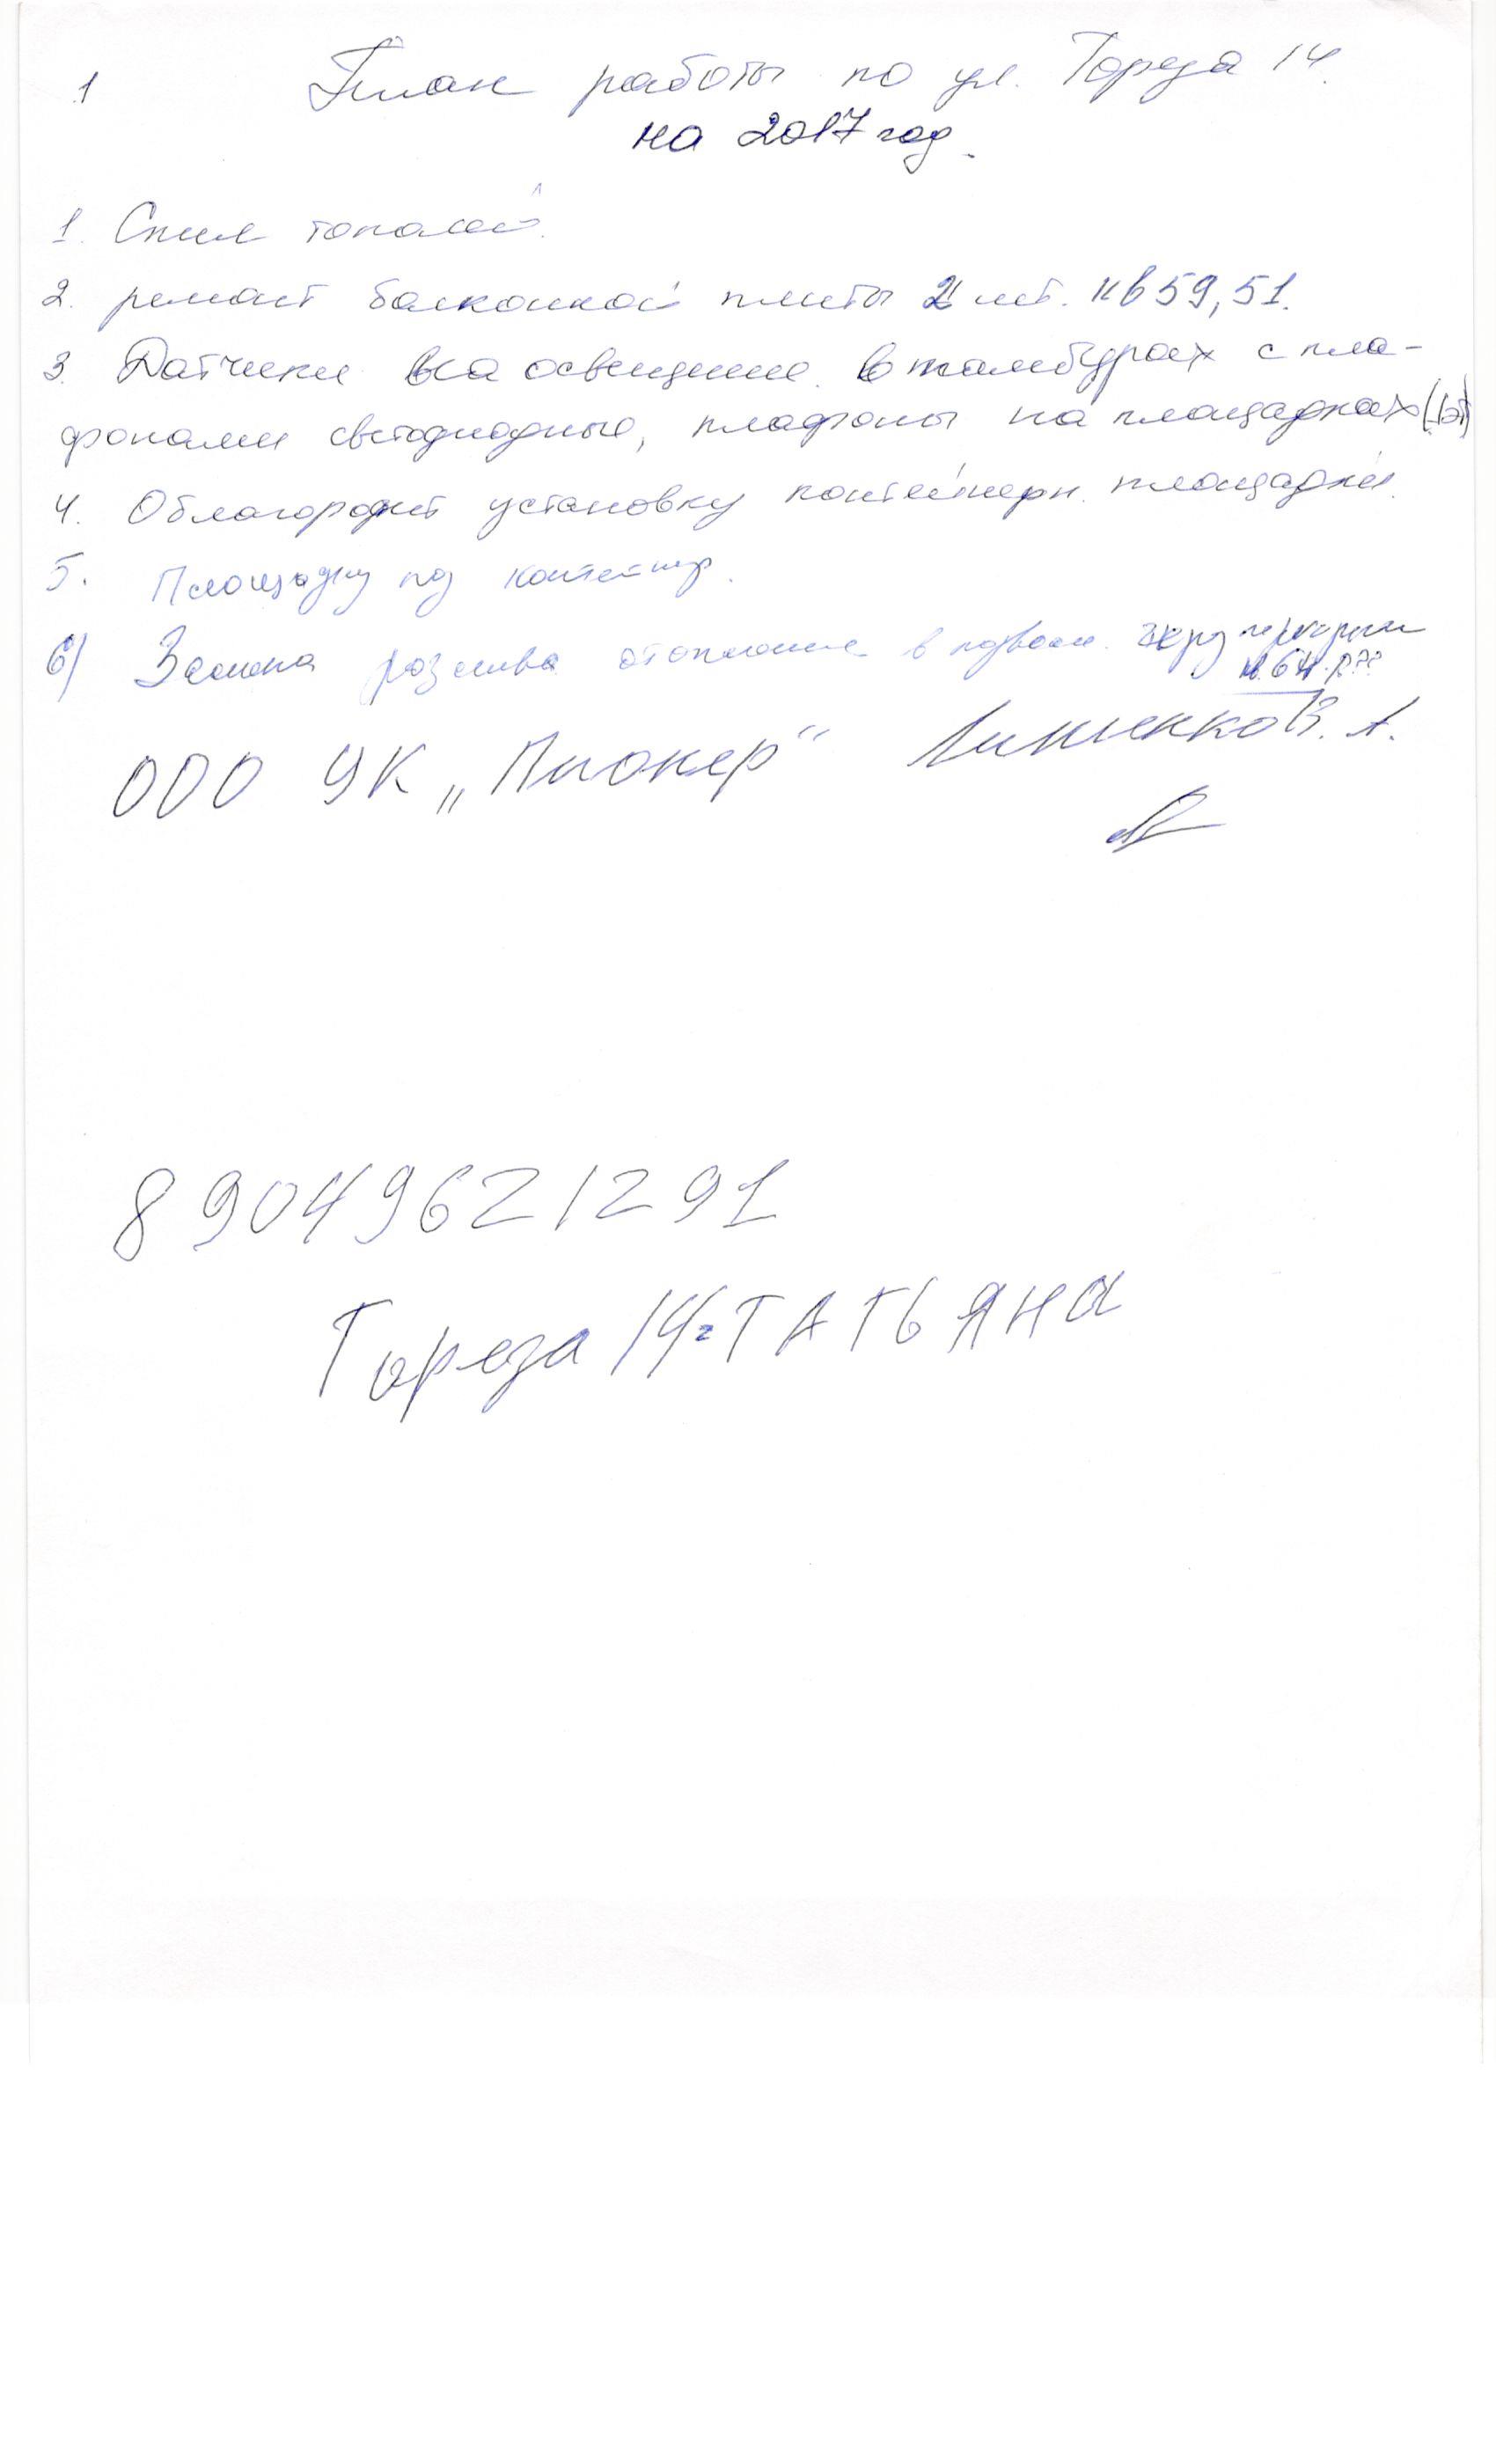 1 План работы по ул. Тореза 14.
на 2017 год.
1. Спил тополей.
2. ремонт балконной плиты 2 шт. кв 59, 51.
3. Датчики на освещение в тамбурах с пла-
фонами светодиодные, плафоны на площадках (1эт)
4. Облагородит установку контейнерн. площадки.
5. Площадку под контейнер.
6) Замена розлива отопление в подвале.
ООО УК „Пионер" В. А.
89049621291
Тореза 14 ТАТЬЯНА